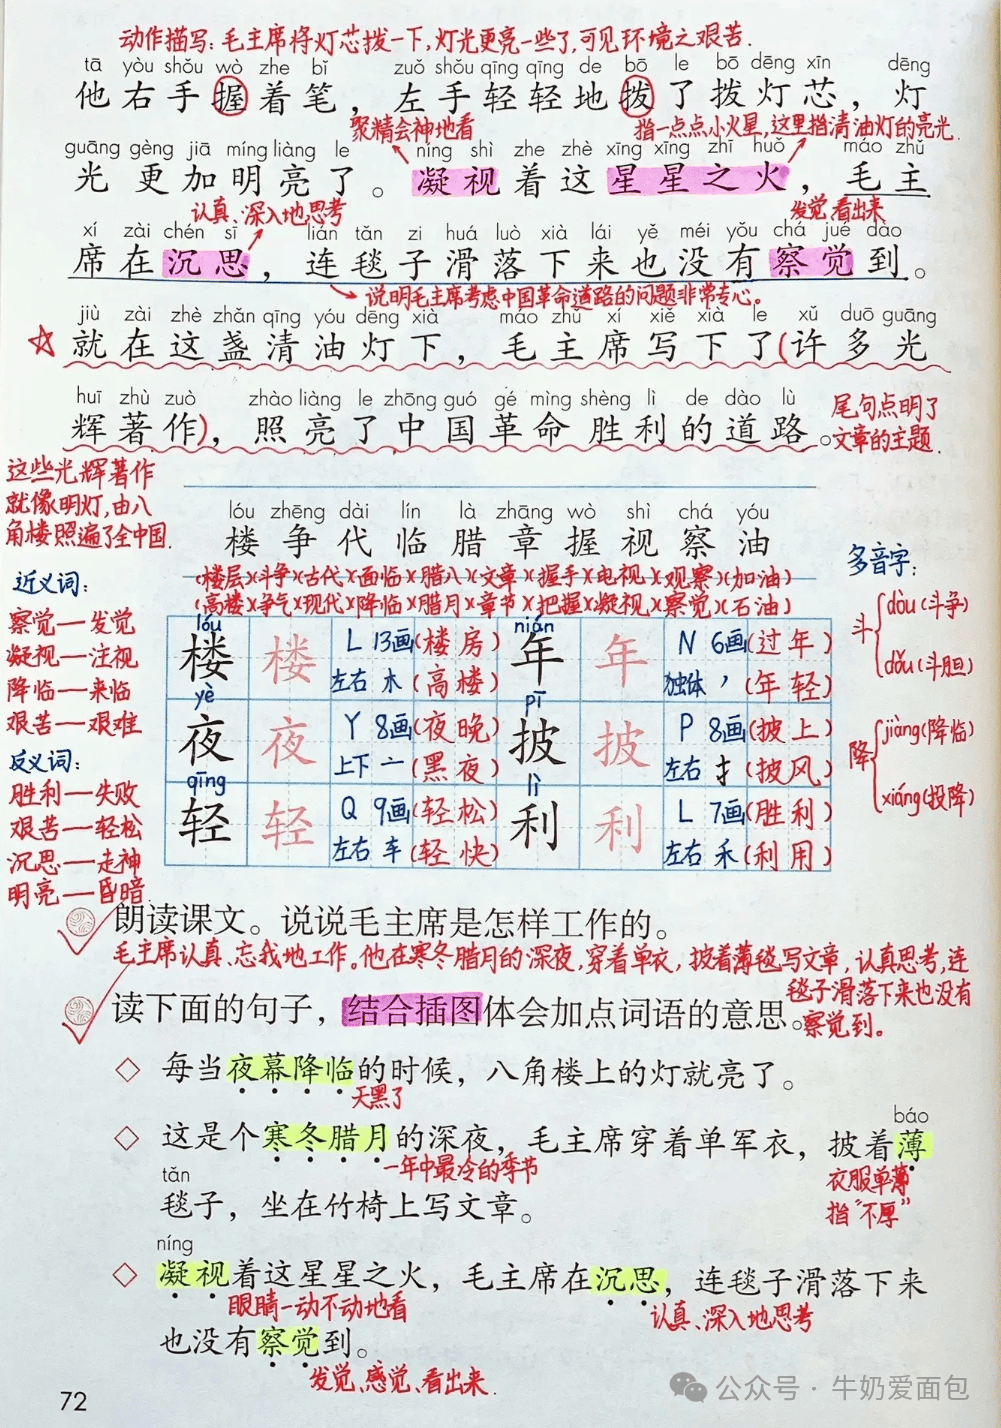 动作描写：毛主席将灯芯拨一下，灯光更亮一些了，可见环境之艰苦．
tā yòu shǒu wò zhe bǐ zuǒ shǒu qīng qīng de bō le bō dēng xīn dēng
他右手握着笔，左手轻轻地拨了拨灯芯，灯
聚精会神地看 指一点点小火星，这里指清油灯的亮光．
guāng gèng jiā míng liàng le níng shì zhe zhè xīng xīng zhī huǒ máo zhǔ
光更加明亮了。凝视着这星星之火，毛主
认真、深入地思考 发觉、看出来
xí zài chén sī lián tǎn zi huá luò xià lái yě méi yǒu chá jué dào
席在沉思，连毯子滑落下来也没有察觉到。
说明毛主席考虑中国革命道路的问题非常专心。
jiù zài zhè zhǎn qīng yóu dēng xià máo zhǔ xí xiě xià le xǔ duō guāng
☆就在这盏清油灯下，毛主席写下了（许多光
huī zhù zuò zhào liàng le zhōng guó gé mìng shèng lì de dào lù
辉著作），照亮了中国革命胜利的道路。
尾句点明了
文章的主题．
这些光辉著作
就像明灯，由八
角楼照遍了全中国．
lóu zhēng dài lín là zhāng wò shì chá yóu
楼争代临腊章握视察油
（楼层）（斗争）（古代）（面临）（腊八）（文章）（握手）（电视）（观察）（加油）
（高楼）（争气）（现代）（降临）（腊月）（章节）（把握）（凝视）（察觉）（石油）
近义词：
察觉—发觉
凝视—注视
降临—来临
艰苦—艰难
反义词：
胜利—失败
艰苦—轻松
沉思—走神
明亮—昏暗
lóu nián
楼 楼 L 13画（楼房） 年 年 N 6画（过年）
左右 木（高楼） 独体 丿（年轻）
yè pī
夜 夜 Y 8画（夜晚） 披 披 P 8画（披上）
上下 亠（黑夜） 左右 扌（披风）
qīng lì
轻 轻 Q 9画（轻松） 利 利 L 7画（胜利）
左右 车（轻快） 左右 禾（利用）
多音字：
斗 dòu（斗争）
dǒu（斗胆）
降 jiàng（降临）
xiáng（投降）
朗读课文。说说毛主席是怎样工作的。
毛主席认真、忘我地工作。他在寒冬腊月的深夜，穿着单衣，披着薄毯写文章，认真思考，连
毯子滑落下来也没有
察觉到。
读下面的句子，结合插图体会加点词语的意思。
◇ 每当夜幕降临的时候，八角楼上的灯就亮了。
天黑了
báo
◇ 这是个寒冬腊月的深夜，毛主席穿着单军衣，披着薄
一年中最冷的季节
衣服单薄
指“不厚”
tǎn
毯子，坐在竹椅上写文章。
níng
◇ 凝视着这星星之火，毛主席在沉思，连毯子滑落下来
眼睛一动不动地看 认真、深入地思考
也没有察觉到。
发觉、感觉、看出来．
72
公众号 · 牛奶爱面包